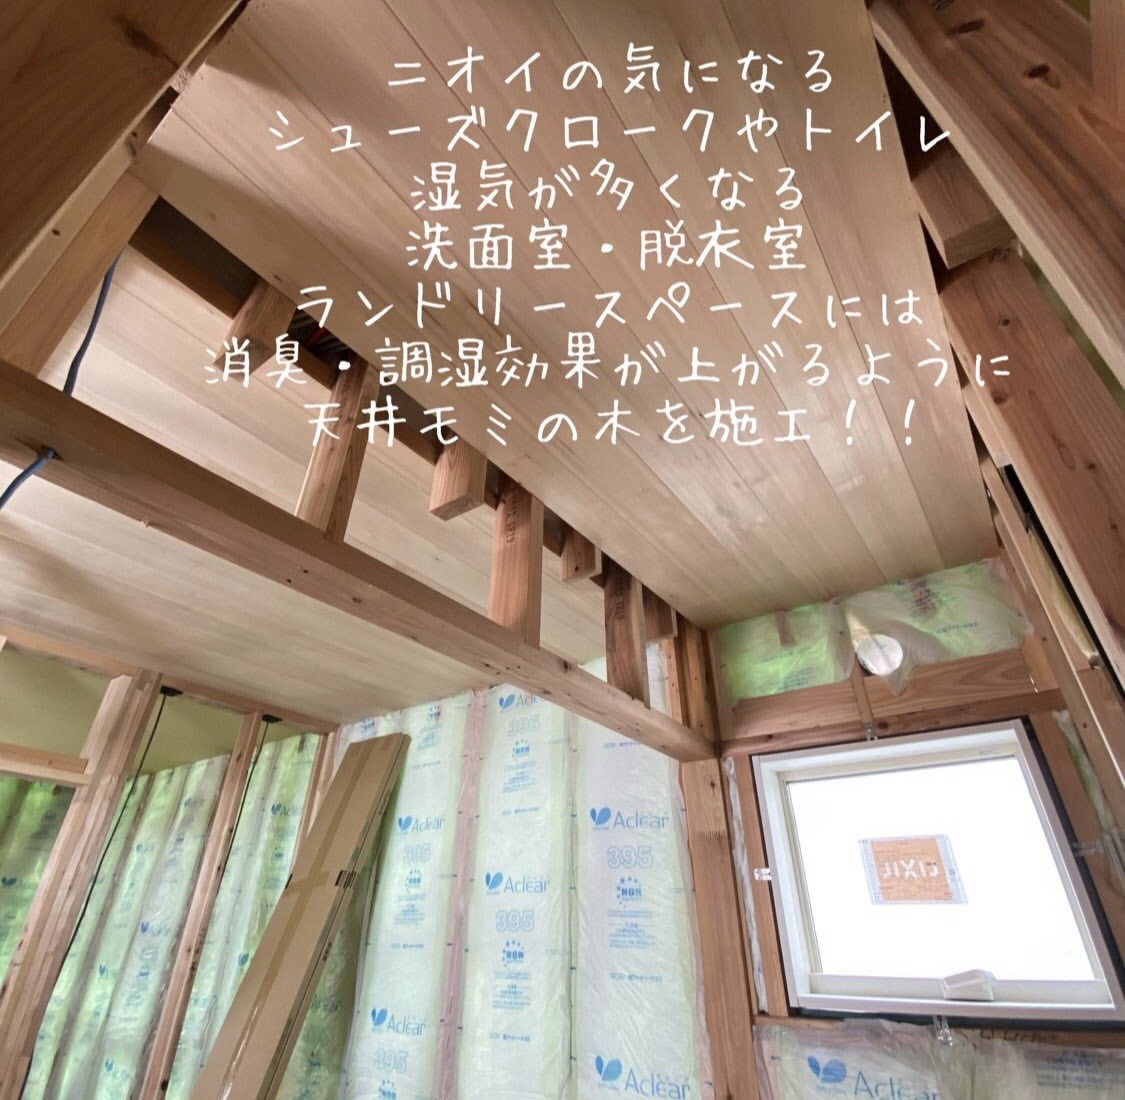 ニオイの気になる
シューズクロークやトイレ
湿気が多くなる
洗面室・脱衣室
ランドリースペースには
消臭・調湿効果が上がるように
天井モミの木を施工！！
Aclear
395
Aclear
395
Aclear
395
Aclear
395
Aclear
Aclear
LIXIL